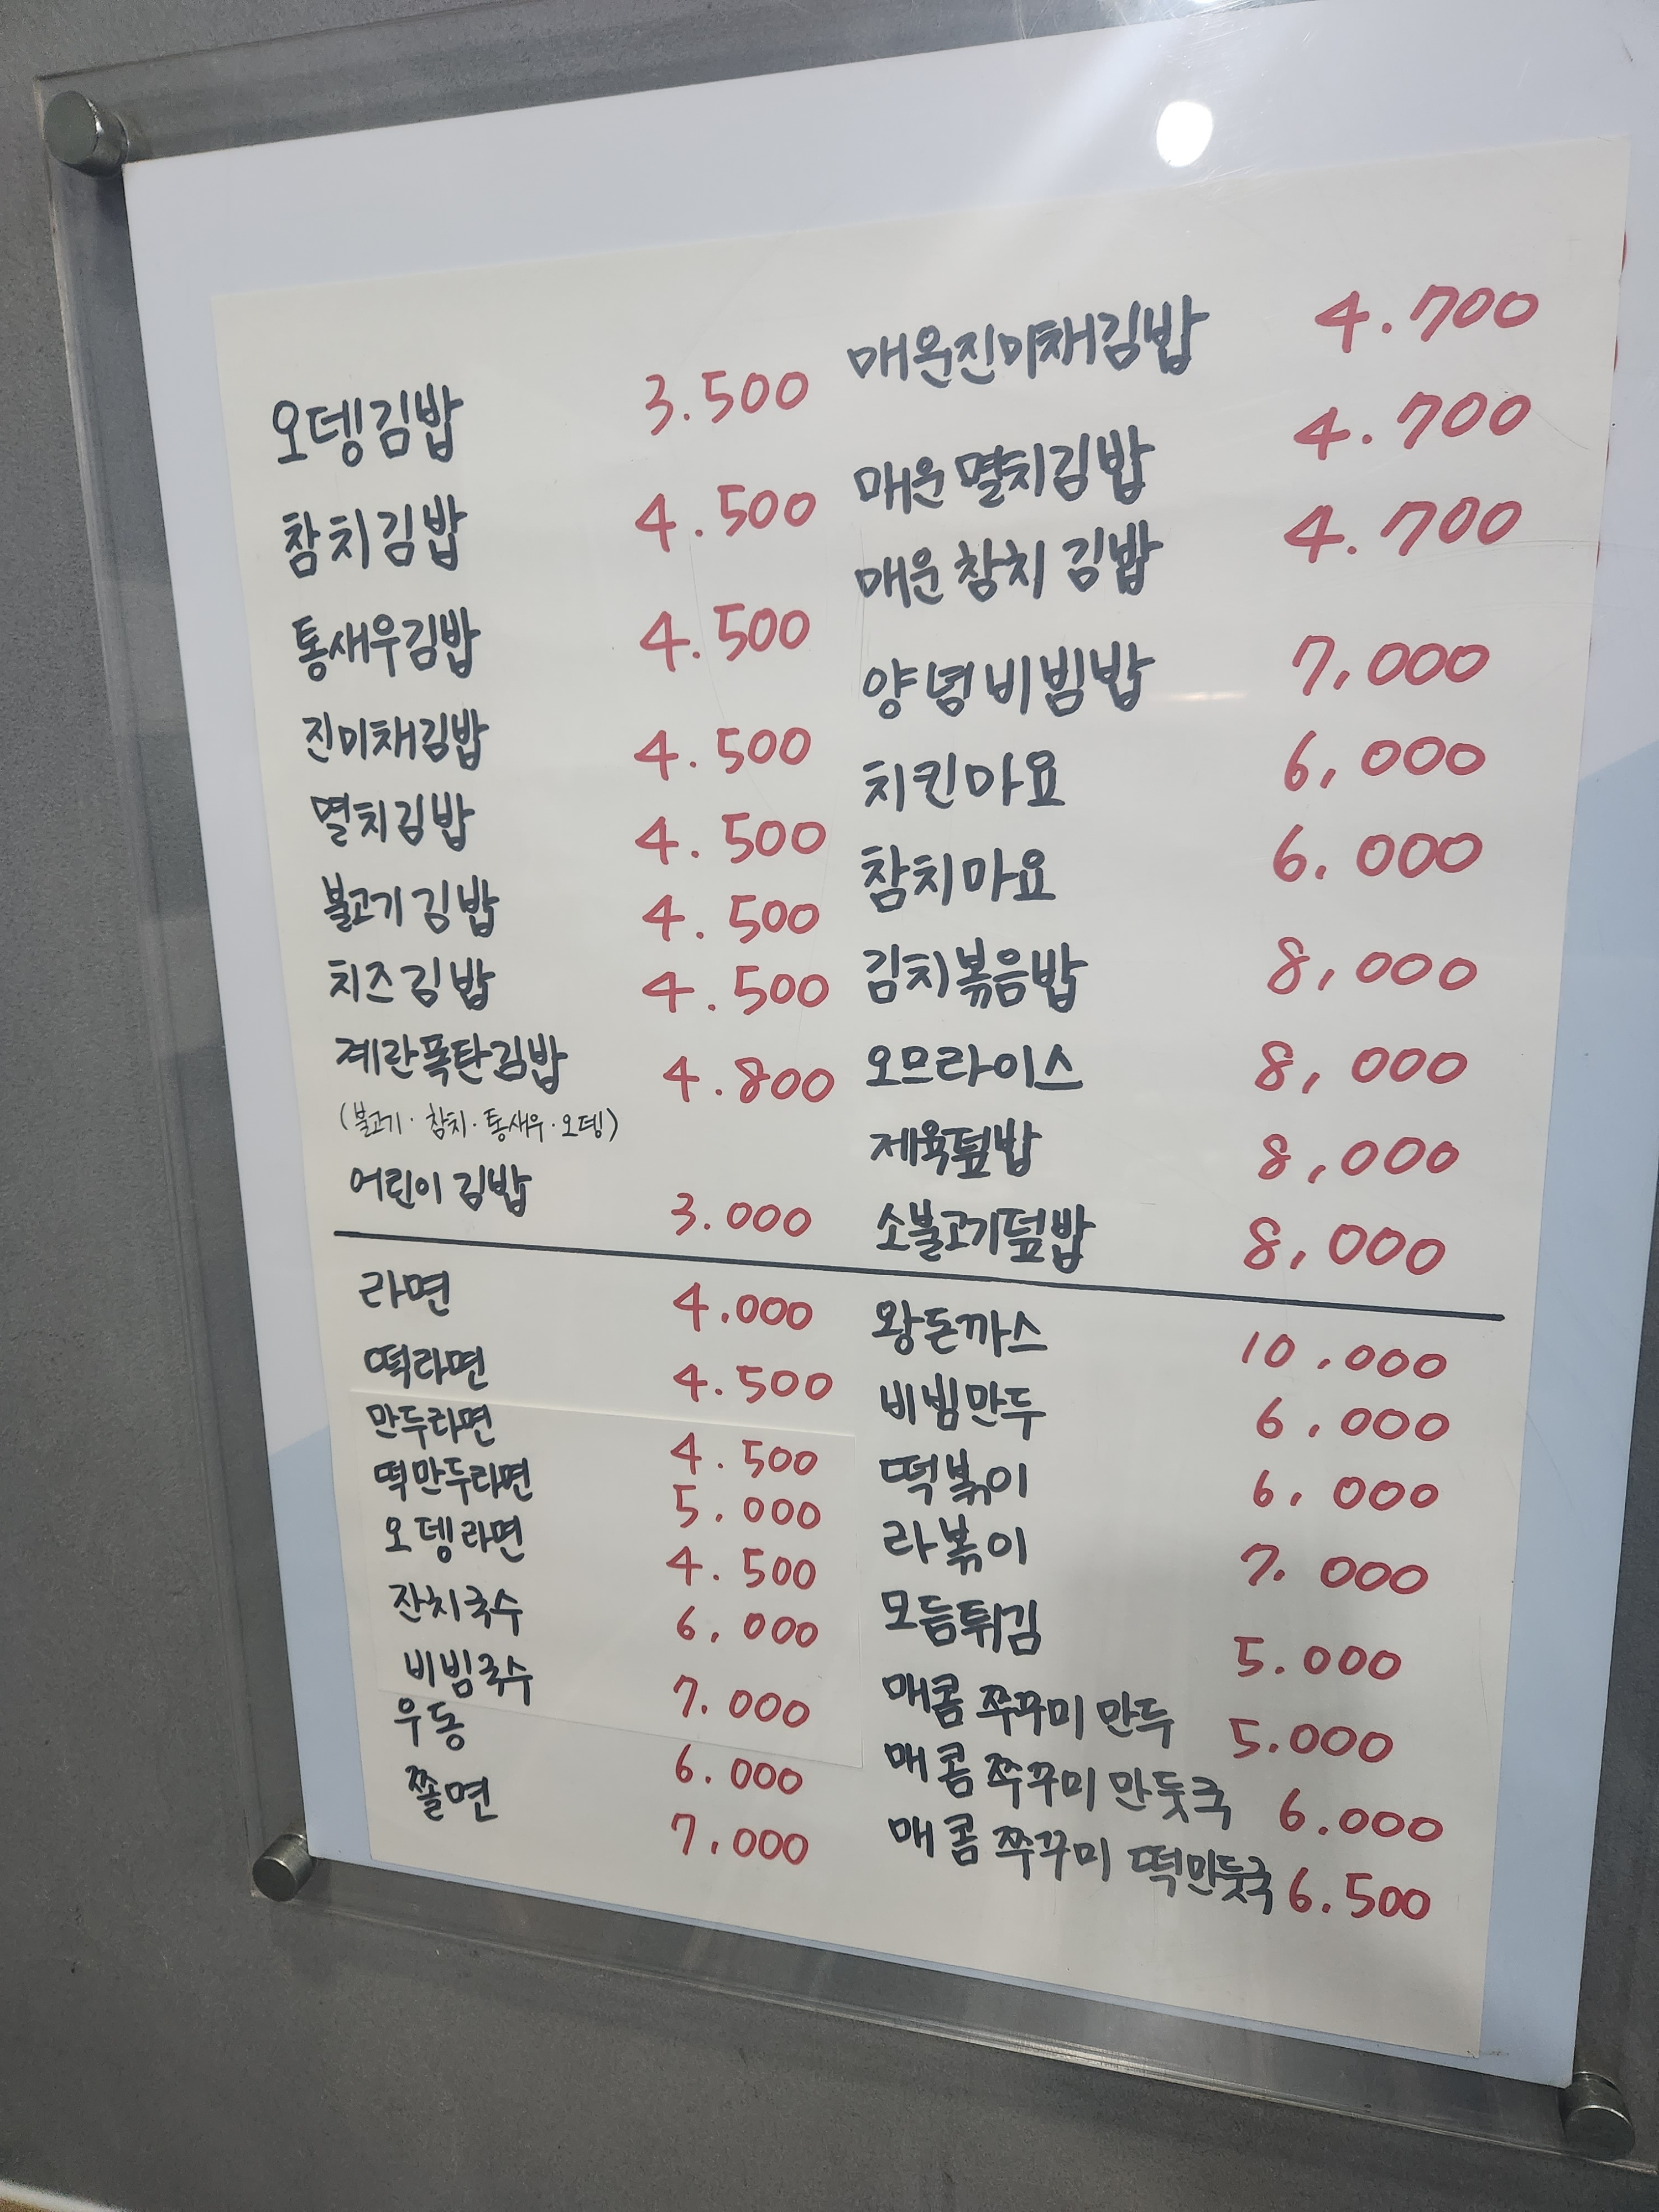 오뎅김밥 3.500
참치김밥 4.500
통새우김밥 4.500
진미채김밥 4.500
멸치김밥 4.500
불고기김밥 4.500
치즈김밥 4.500
계란폭탄김밥 4.800
(불고기·참치·통새우·오뎅)
어린이 김밥 3.000
매운진미채김밥 4.700
매운 멸치김밥 4.700
매운 참치 김밥 4.700
양념비빔밥 7,000
치킨마요 6,000
참치마요 6.000
김치볶음밥 8,000
오므라이스 8,000
제육덮밥 8,000
소불고기덮밥 8,000
라면 4.000
떡라면 4.500
만두라면 4.500
떡만두라면 5.000
오뎅라면 4.500
잔치국수 6,000
비빔국수 7.000
우동 6.000
쫄면 7,000
왕돈까스 10.000
비빔만두 6,000
떡볶이 6,000
라볶이 7.000
모듬튀김 5.000
매콤 쭈꾸미 만두 5.000
매콤 쭈꾸미 만둣국 6.000
매콤 쭈꾸미 떡만둣국 6.500